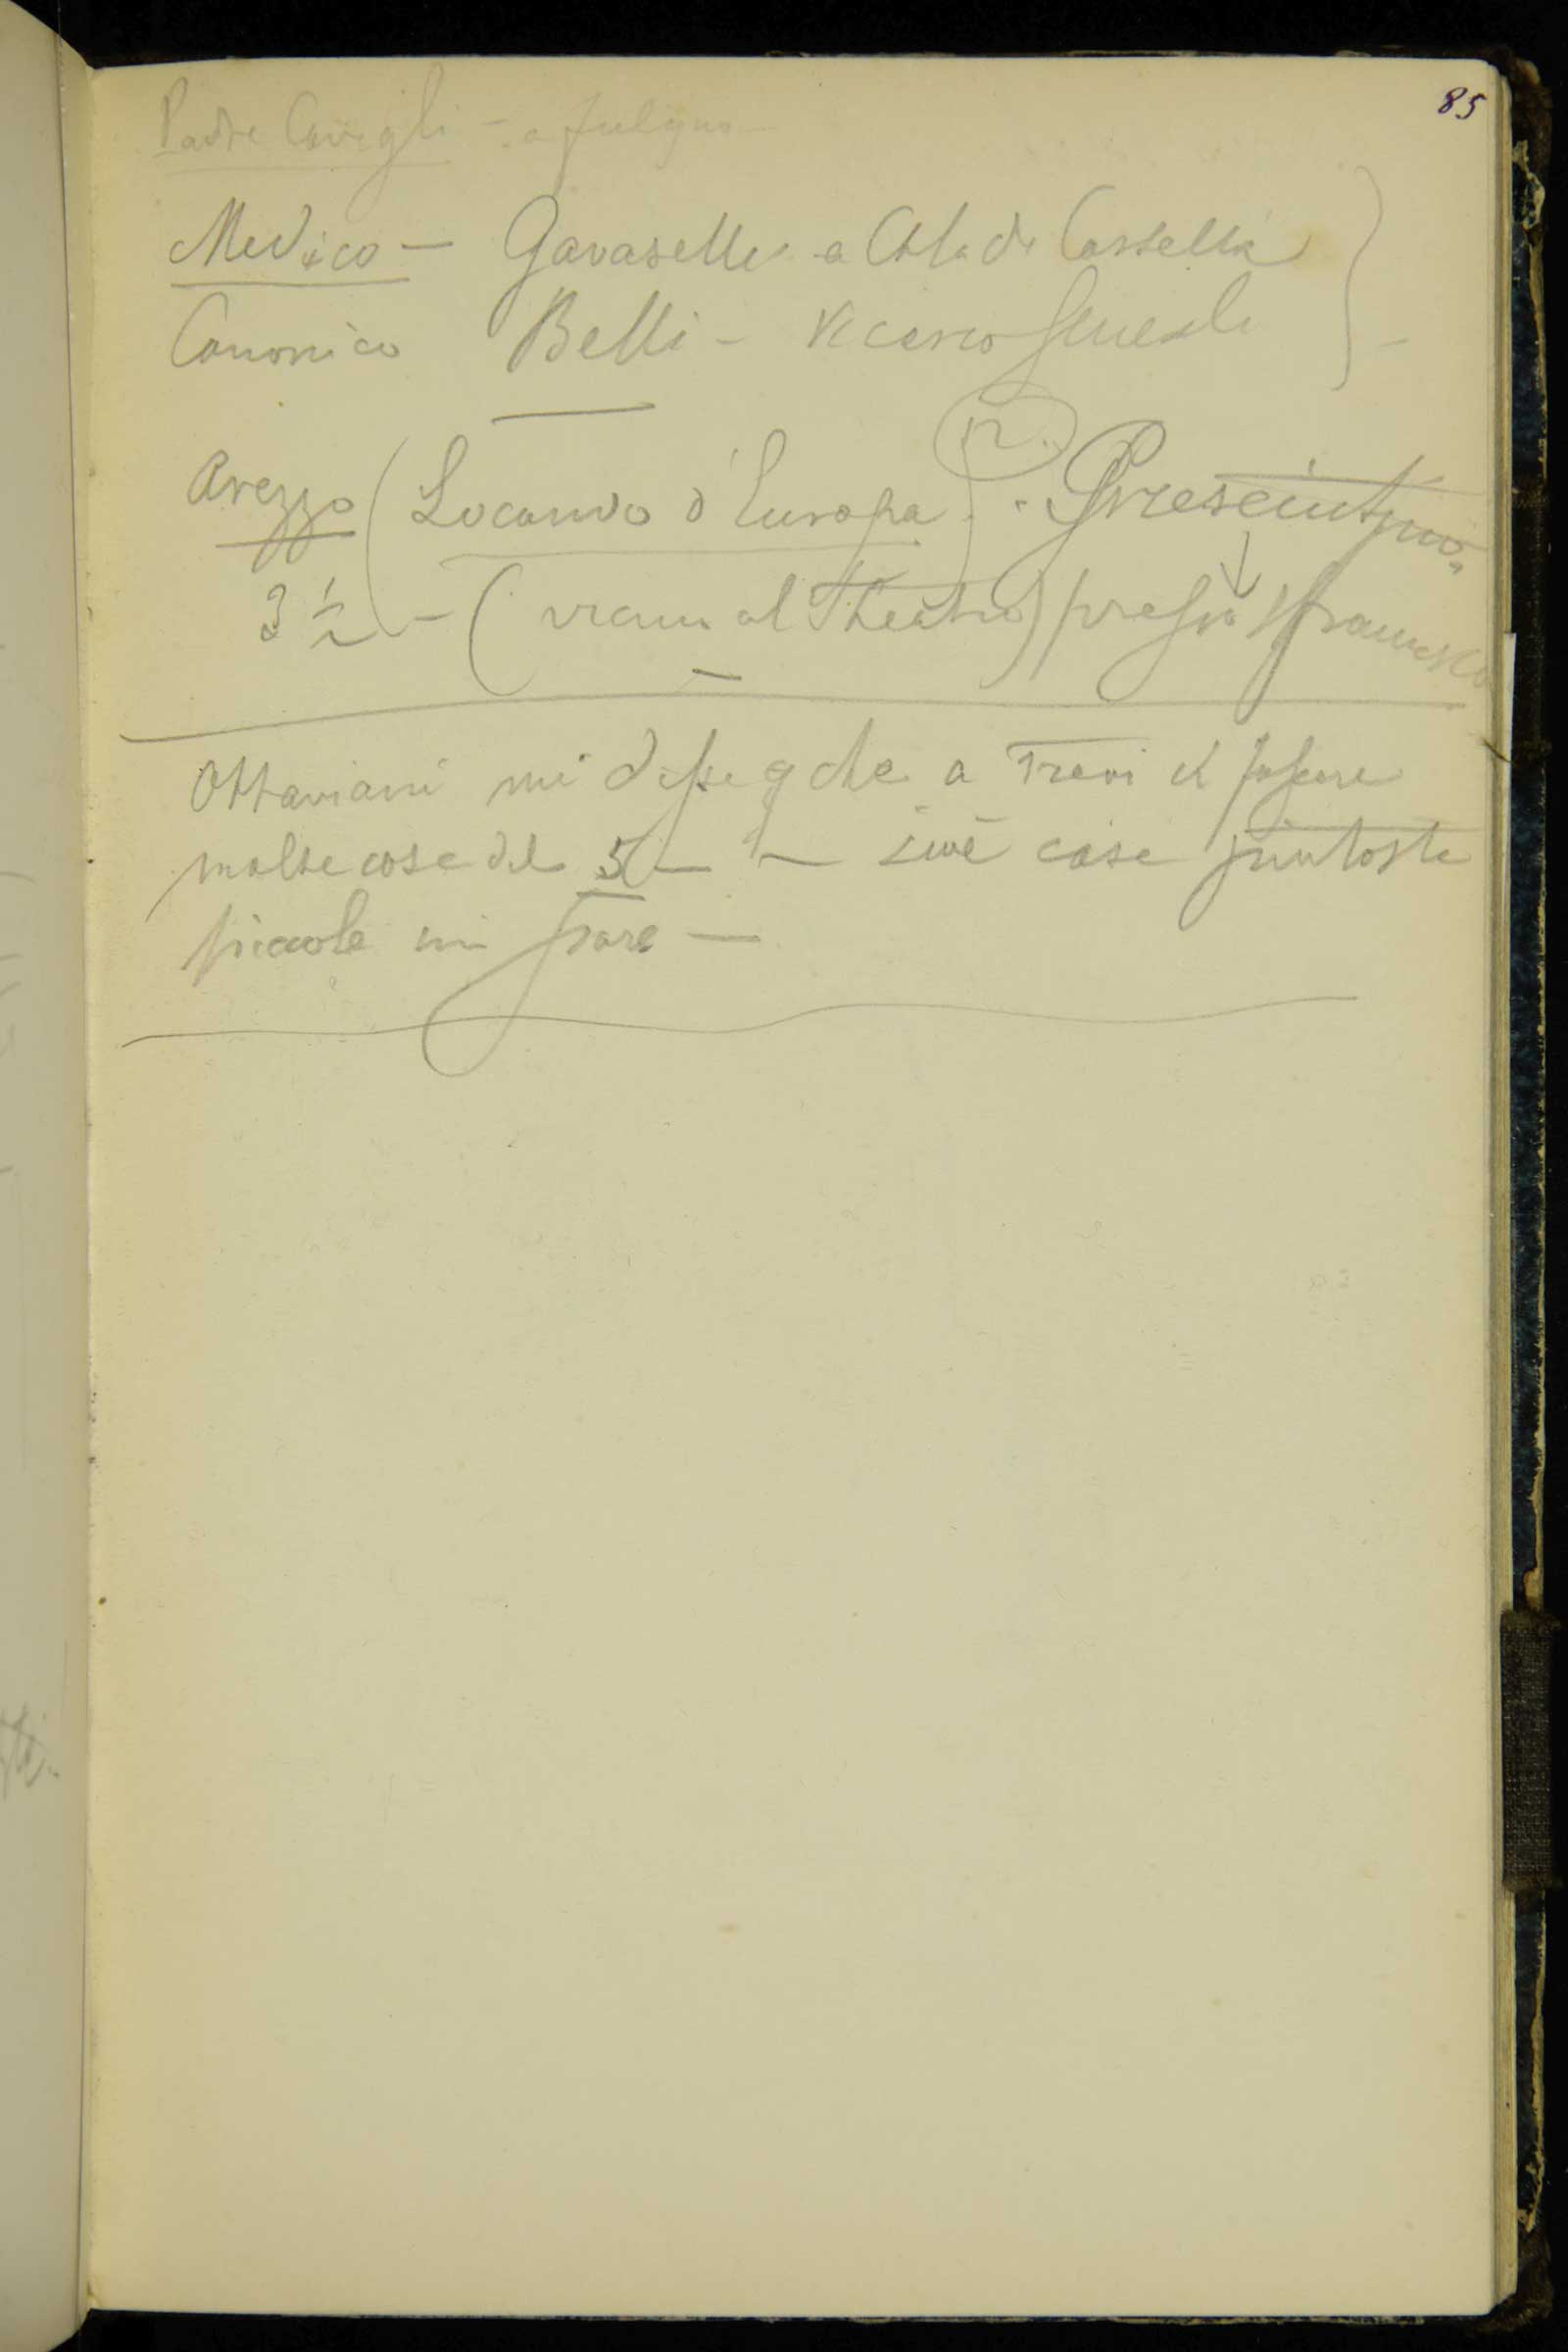 85
Padre Cavigli - a Fuligno
Medico - Gavaselli a Cttà di Castello
Canonico Belli - Vicario Generale
Arezzo (Locanda d'Europa)
3 ½ - (vicino al Theatro) presso Francesco
Ottaviani mi disse che a Trevi vi fossero
molte cose del 5 - cioè cose piutoste
piccole mi pare -